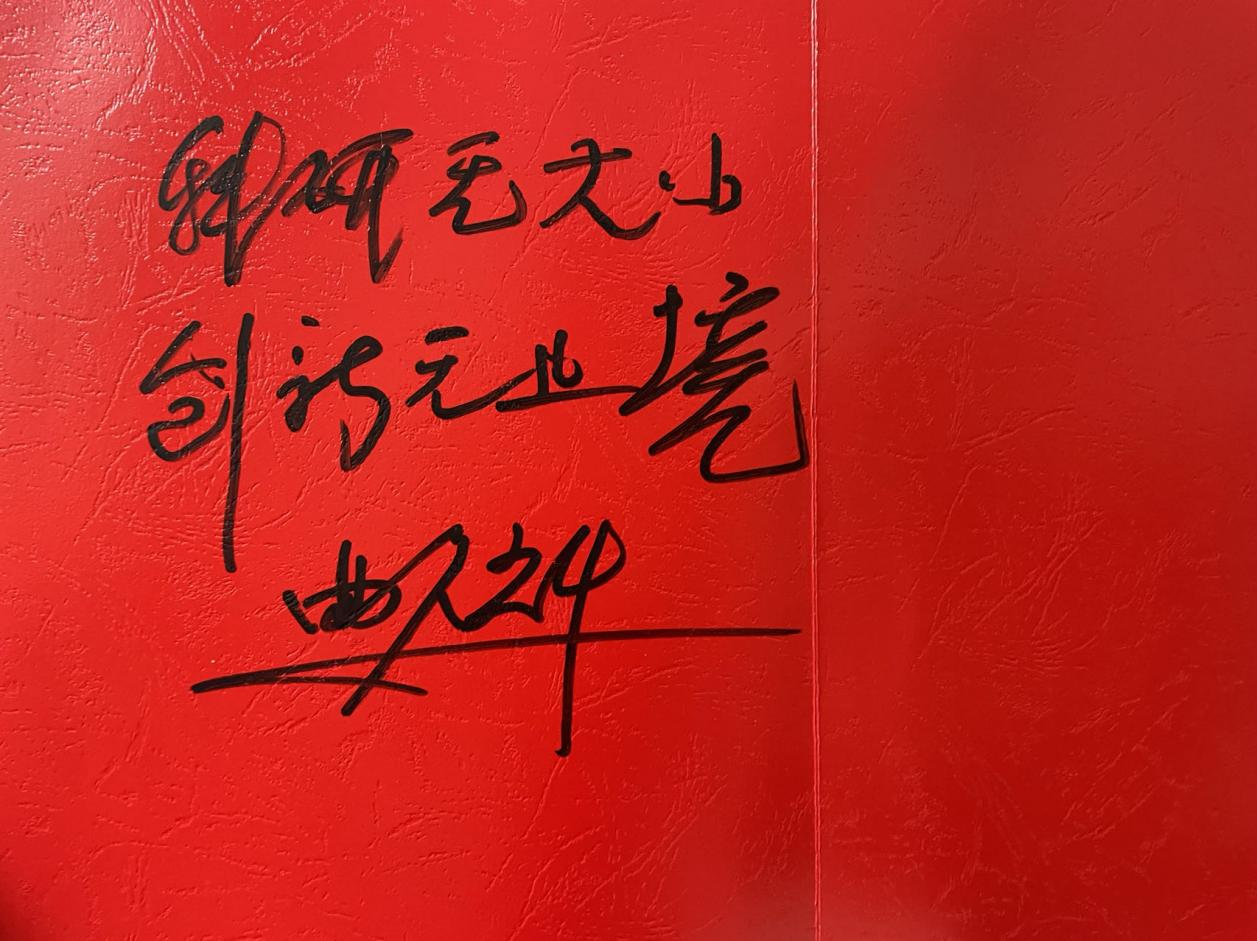 科研无大小
创新无止境
曲久辉